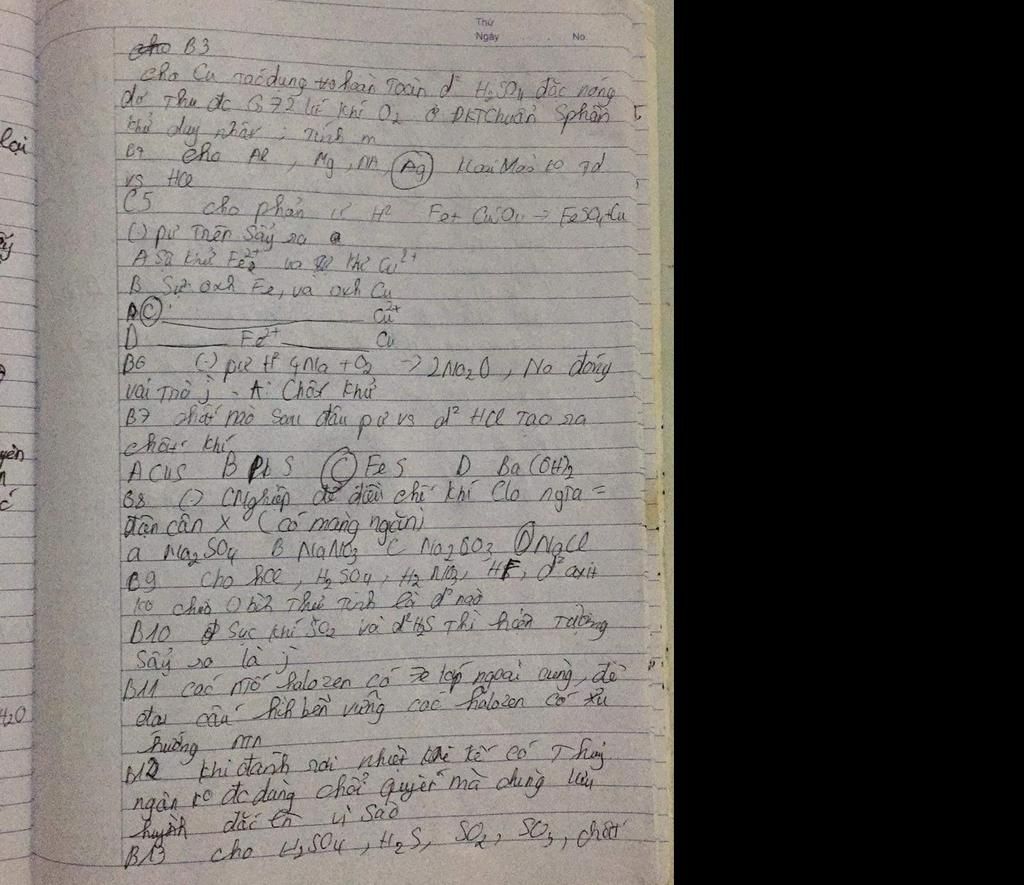 Thứ
Ngày No.
cho B3
cho Cu tác dụng hoàn toàn d² H₂SO₄ đặc nóng
dư thu đc 6,72 lít khí O₂ ở ĐKTChuẩn Sphẩm
khử duy nhất ; tính m
B4 cho Al, Mg, NA, Ag kloại Mào ko td
vs HCl
C5 cho phản ứ H² Fe + CuSO₄ → FeSO₄+Cu
(-) pư trên sảy ra
A Sự khử Fe²⁺ và sự khử Cu²⁺
B Sự oxh Fe, và oxh Cu
C Cu²⁺
D Fe²⁺ Cu
B6 (-) pư H² 4Na + O₂ → 2Na₂O, Na đóng
vai trò j - A: Chất khử
B7 chất nào sau đâu pư vs d² HCl tạo ra
chất khí
A CuS B PbS C FeS D Ba(OH)₂
B8 (-) CNghiệp để điều chế khí Clo ngta =
điện cần X (có màng ngăn)
a Na₂SO₄ B NaNO₃ C Na₂CO₃ D NaCl
B9 cho hCl, H₂SO₄, H₂NO₃, HF, d² axit
ko chứa () bìh thuỷ tinh là d² nào
B10 Sục khí SO₂ và d²H₂S thì hiện tượng
sảy ra là j
B11 các ntố halozen có 7e lớp ngoài cùng, để
đạt cấu hìh bền vững các halozen có xu
hướng ntn
B12 khi đánh rơi nhiệt kế có thuỷ
ngân ko đc dùng chổi quyét mà dùng lưu
huỳnh rắc lên vì sao
B13 cho H₂SO₄, H₂S, SO₂, SO₃, chất
lại
yên
H₂O